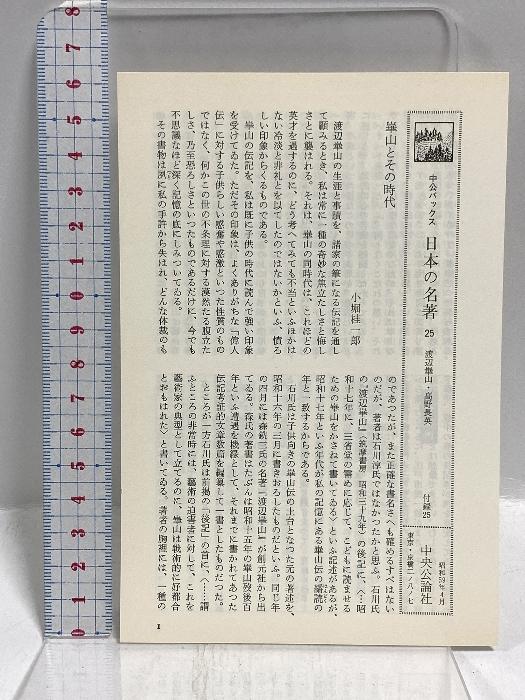 中公バックス 日本の名著 25 渡辺崋山・高野長英 付録25
昭和59年4月
中央公論社
東京・京橋二ノ八ノ七
崋山とその時代
小堀桂一郎
渡辺崋山の生涯と事蹟を、諸家の筆になる伝記を通し
て顧みるとき、私は常に一種の奇妙な焦立たしさと悔し
さとに襲はれる。それは、崋山の同時代は、これほどの
英才を遇するのに、どう考へてみても不当といふほかは
ない冷淡と非礼とを以てしたのではないかといふ、憤ろ
しい印象からくるものである。
崋山の伝記を、私は既に子供の時代に読んで強い印象
を受けてゐた。ただその印象は、よくありがちな「偉人
伝」に対する子供らしい感奮や感激といつた性質のもの
ではなく、何かこの世の不条理に対する漠然たる腹立た
しさ、乃至恐ろしさといつたものであるだけに、今でも
不思議なほど深く記憶の底にしみついてゐる。
その書物は夙に私の手許から失はれ、どんな体裁のも
のであつたか、また正確な書名さへも確めるすべはない
のだが、著者は石川淳氏ではなかつたかと思ふ。石川氏
の『渡辺崋山』(筑摩書房 昭和三十九年)の後記に、〈…昭
和十七年に、三省堂の需めに応じて、こどもに読ませる
ための崋山をかさねて書いてゐる〉といふ記述があるが、
昭和十七年といふ年代が私の記憶にある崋山伝の繙読の
年と一致するからである。
石川氏は子供向きの崋山伝の土台となつた元の著述を、
昭和十六年の三月に書きおろしたものだといふ。同じ年
の四月には森銑三氏の名著『渡辺崋山』が創元社から出
てゐる。森氏の著書はたぶんは昭和十五年の崋山歿後百
年といふ遭遇を機縁として、それまでに書かれてあつた
伝記考証的文章数篇を編纂して一書としたものだつた。
ところが一方石川氏は前掲の「後記」の首に、〈……謂
ふところの非常時には、藝術の迫害者に対して、これを
藝術家の典型として立てるのに、崋山は戦術的に好都合
とおもはれた〉と書いてゐる。著者の胸裡には、一種の
1